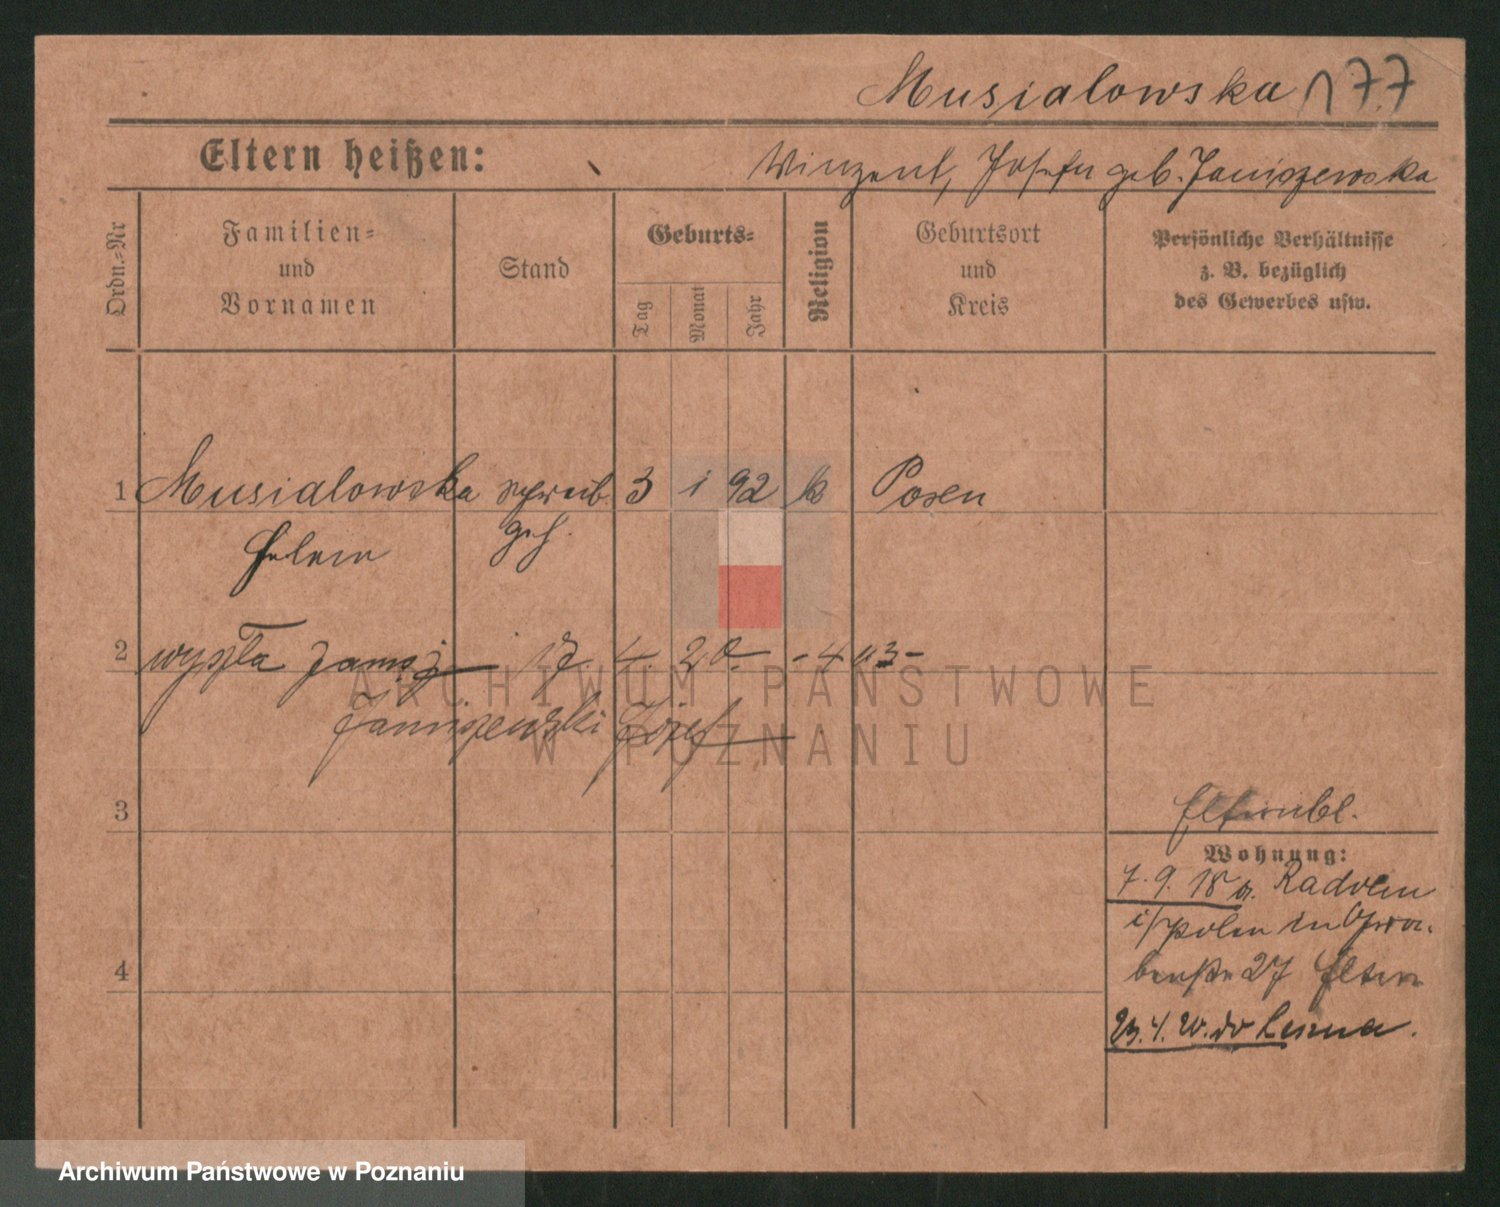 Musialowska 177
Eltern heißen: Winzent, Josefa geb. Janiszewska
Ordn.-Nr
Familien-
und
Vornamen
Stand
Geburts-
Tag
Monat
Jahr
Religion
Geburtsort
und
Kreis
Persönliche Verhältnisse
z. B. bezüglich
des Gewerbes usw.
1 Musialowska schreib. 3 1 92 k Posen
Helene geh.
2 wyszła 17. 4. 20
Janiszewski Józef
3
Wohnung:
7. 9. 18 a. Radom
i/Polen in
27 Eltern
4
23. 4. 20. do
ARCHIWUM PAŃSTWOWE
W POZNANIU
Archiwum Państwowe w Poznaniu